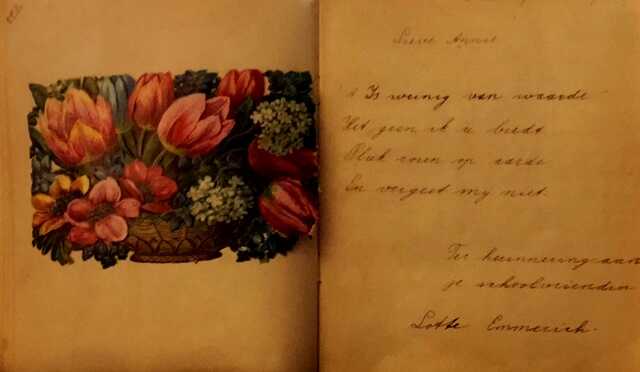 Lieve Annie
't Is weinig van waarde
Het geen ik u biedt
Pluk rozen op aarde
En vergeet mij niet.
Ter herinnering aan
je schoolvriendin
Lotte Emmerich.